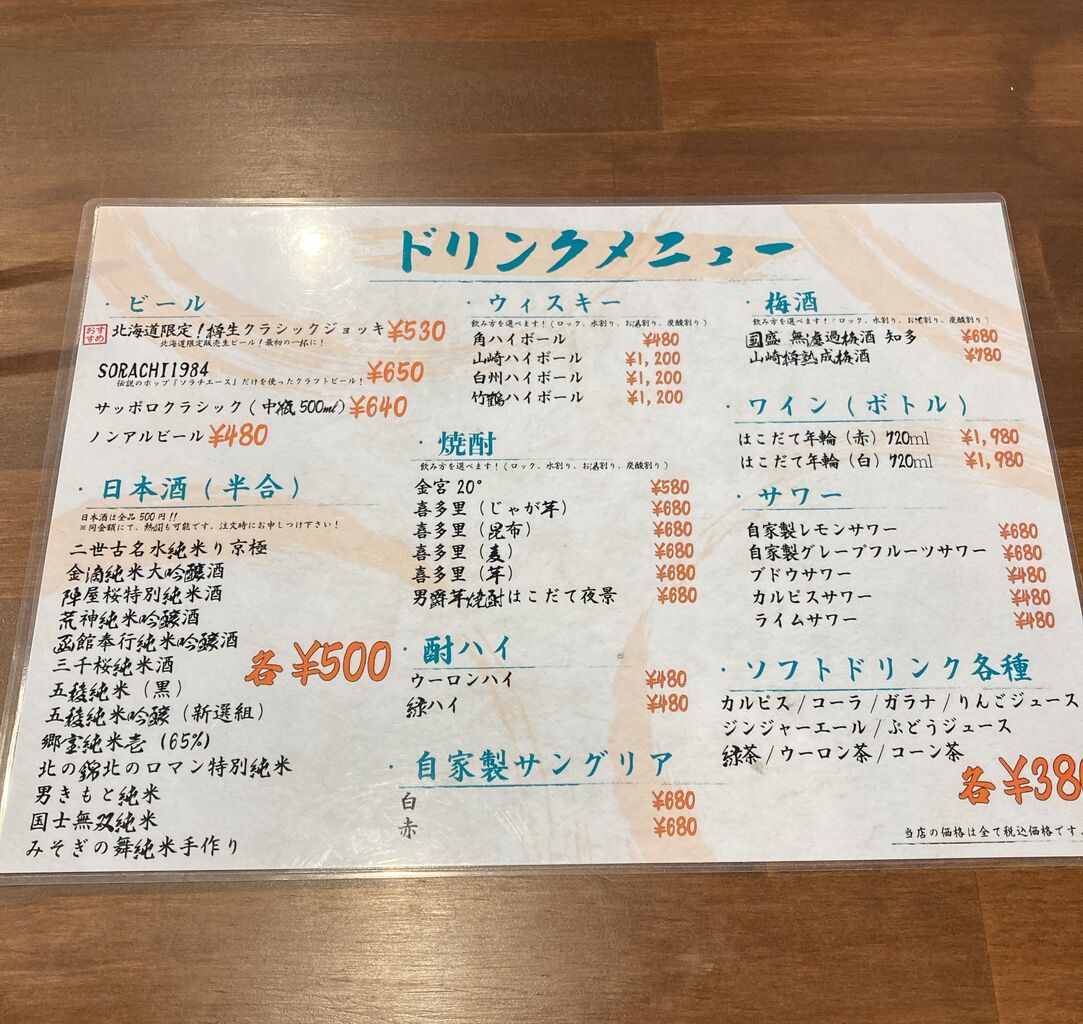 ドリンクメニュー
・ビール
おすすめ
北海道限定!樽生クラシックジョッキ ¥530
北海道限定販売生ビール!最初の一杯に!
SORACHI1984 ¥650
伝説のホップ『ソラチエース』だけを使ったクラフトビール!
サッポロクラシック(中瓶500ml) ¥640
ノンアルビール ¥480
・日本酒(半合)
日本酒は全品500円!!
※同金額にて、熱燗も可能です。注文時にお申しつけ下さい!
二世古名水純米り京極
金滴純米大吟醸酒
陣屋桜特別純米酒
荒神純米吟醸酒
函館奉行純米吟醸酒
三千桜純米酒
五稜純米(黒)
五稜純米吟醸(新選組)
郷宝純米壱(65%)
北の錦北のロマン特別純米
男きもと純米
国士無双純米
みそぎの舞純米手作り
各¥500
・ウィスキー
飲み方を選べます!(ロック、水割り、お湯割り、炭酸割り)
角ハイボール ¥480
山崎ハイボール ¥1,200
白州ハイボール ¥1,200
竹鶴ハイボール ¥1,200
・焼酎
飲み方を選べます!(ロック、水割り、お湯割り、炭酸割り)
金宮20° ¥580
喜多里(じゃが芋) ¥680
喜多里(昆布) ¥680
喜多里(麦) ¥680
喜多里(芋) ¥680
男爵芋焼酎はこだて夜景 ¥680
・酎ハイ
ウーロンハイ ¥480
緑ハイ ¥480
・自家製サングリア
白 ¥680
赤 ¥680
・梅酒
飲み方を選べます!(ロック、水割り、お湯割り、炭酸割り)
國盛 無濾過梅酒 知多 ¥680
山崎樽熟成梅酒 ¥780
・ワイン(ボトル)
はこだて年輪(赤)720ml ¥1,980
はこだて年輪(白)720ml ¥1,980
・サワー
自家製レモンサワー ¥680
自家製グレープフルーツサワー ¥680
ブドウサワー ¥480
カルピスサワー ¥480
ライムサワー ¥480
・ソフトドリンク各種
カルピス/コーラ/ガラナ/りんごジュース
ジンジャーエール/ぶどうジュース
緑茶/ウーロン茶/コーン茶
各¥380
当店の価格は全て税込価格です。